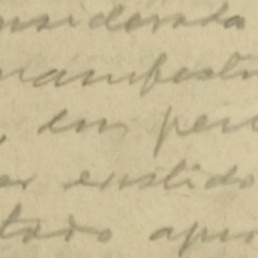 nsiderada
manifest
, em pen
er existido
tado apr